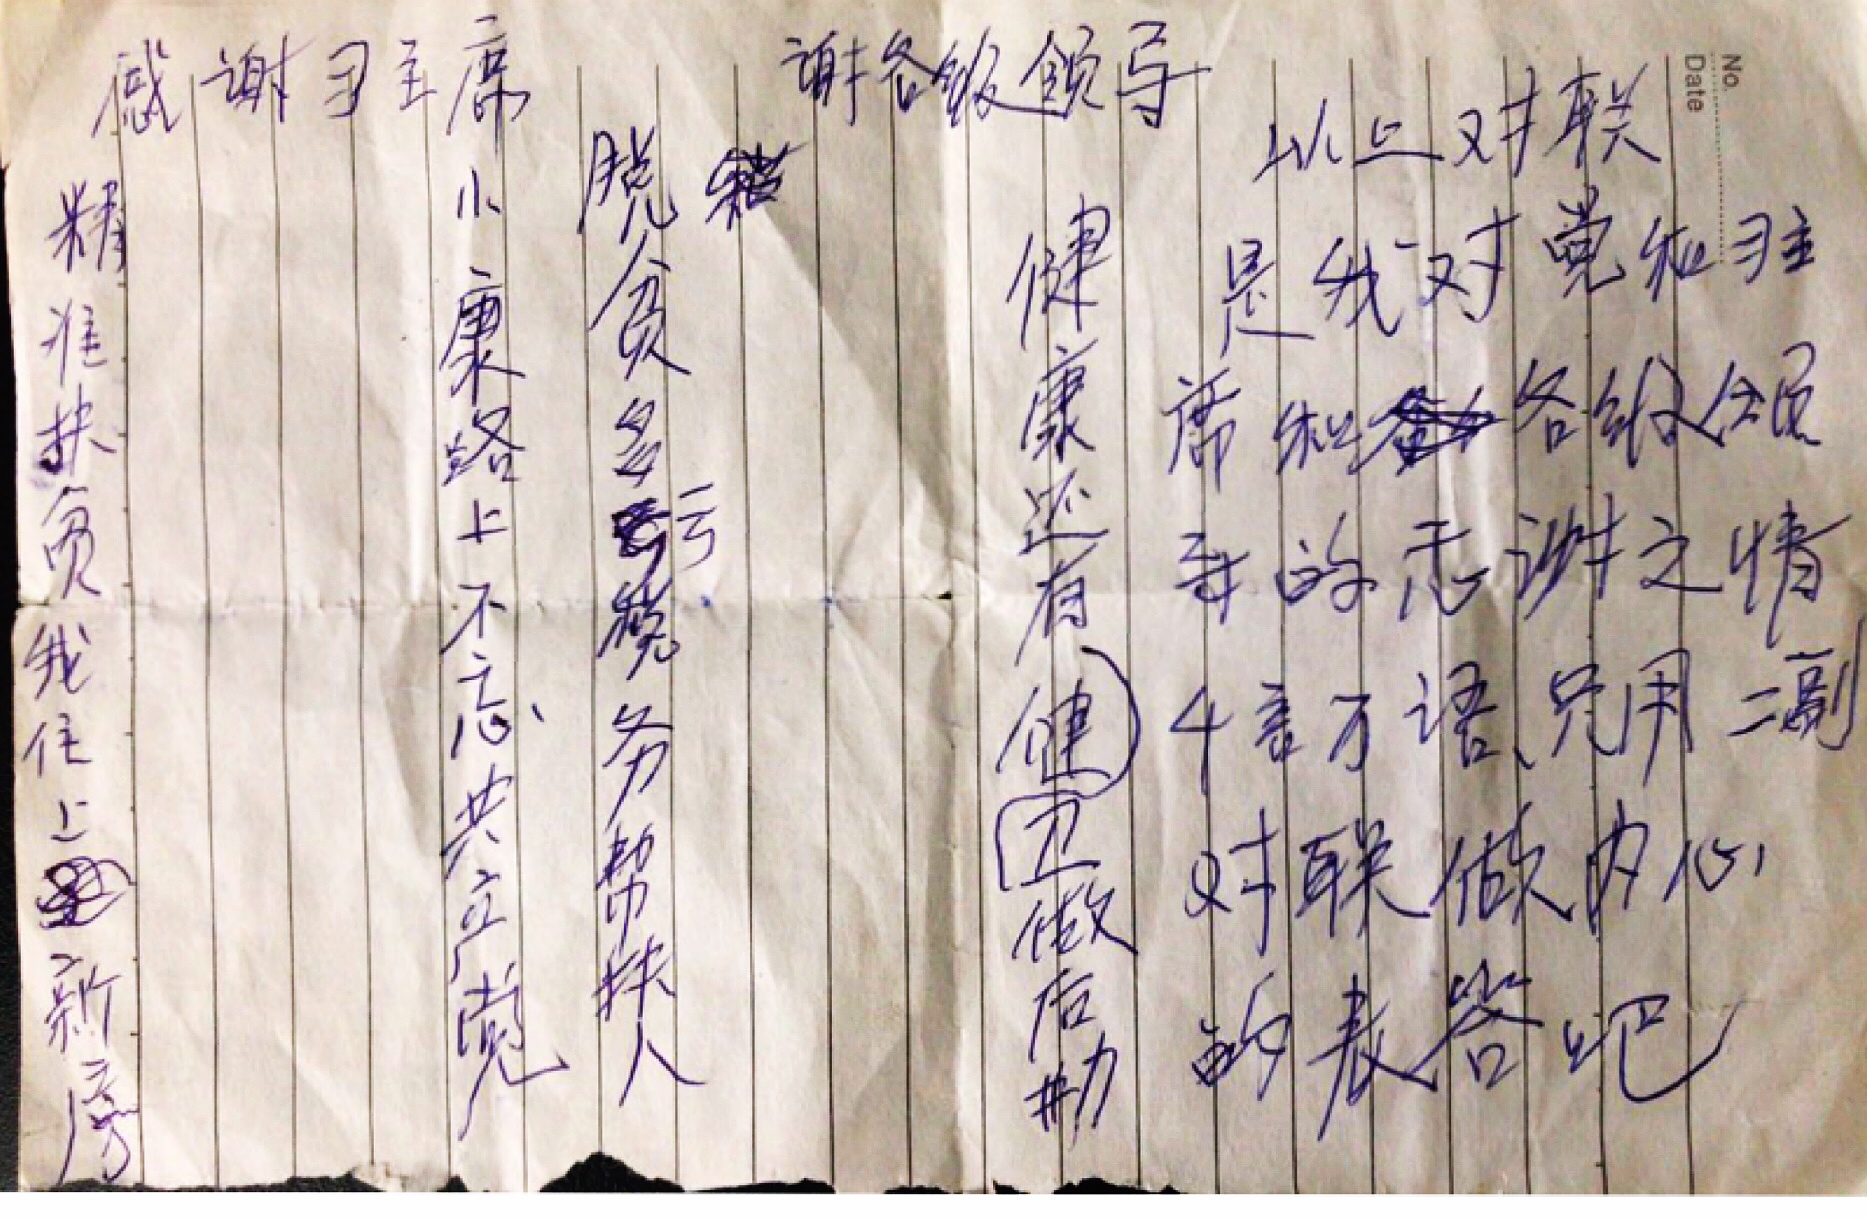 感谢习主席
精准扶贫我住上新房
小康路上不忘共产党
谢各级领导
脱贫多亏税务帮扶人
健康还有健卫做后勤
No.
Date
以上对联
是我对党和习主
席和各级领
导的感谢之情
千言万语、只用二副
对联做内心
的表答吧